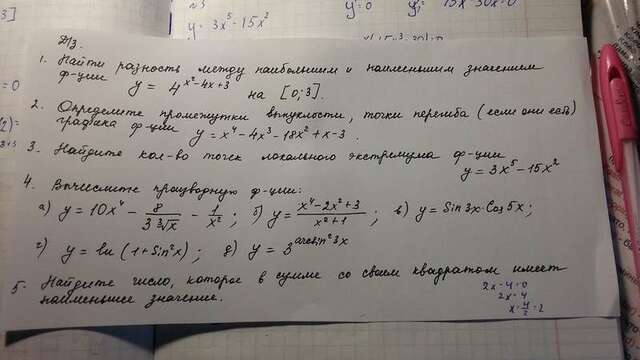 №3
y = 3x⁵ - 15x²
y' = 0
3]
= 0
ДЗ.
1. Найти разность между наибольшим и наименьшим значением
ф-ции y = 4^(x²-4x+3) на [0;3].
2. Определите промежутки выпуклости, точки перегиба (если они есть)
графика ф-ции y = x⁴ - 4x³ - 18x² + x - 3.
3. Найдите кол-во точек локального экстремума ф-ции
y = 3x⁵ - 15x²
4. Вычислите производную ф-ции:
а) y = 10x⁴ - 8/(3∛x) - 1/x²; б) y = (x⁴ - 2x² + 3)/(x² + 1); в) y = Sin3x·Cos5x;
г) y = ln(1 + Sin²x); д) y = 3^(arcsin²3x)
5. Найдите число, которое в сумме со своим квадратом имеет
наименьшее значение.
2x - 4 = 0
2x = 4
x = 4/2 = 2